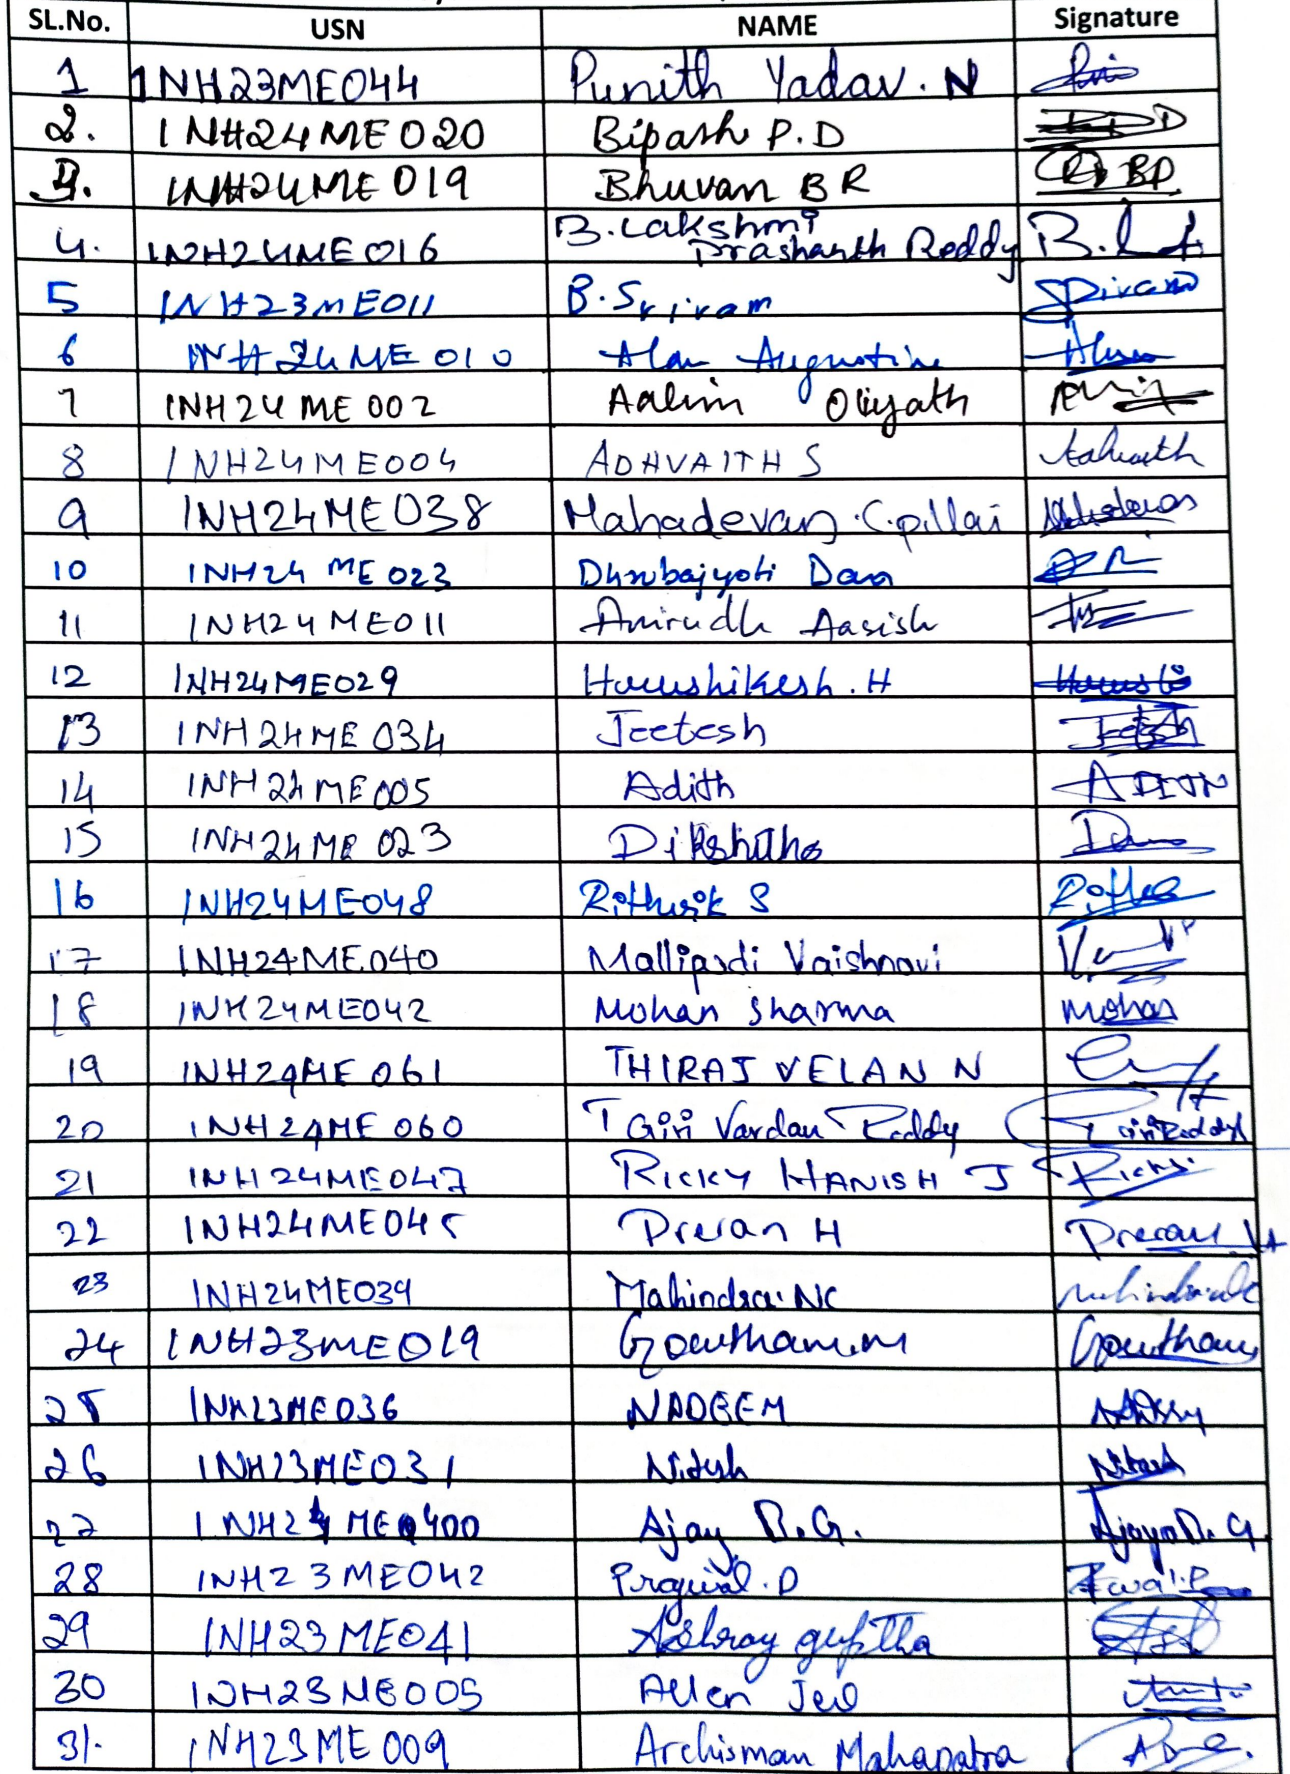 SL.No. USN NAME Signature
1 1NH23ME044 Punith Yadav. N
2. 1NH24ME020 Bipash P.D
3. 1NH24ME019 Bhuvan B R
4. 1NH24ME016 B. Lakshmi
Prashanth Reddy B.L
5 1NH23ME011 B. Sriram
6 1NH24ME010 Alan Augustine Alan
7 1NH24ME002 Aalim Oliyath
8 1NH24ME004 ADHVAITH S
9 1NH24ME038 Mahadevan.C.pillai
10 1NH24ME023 Dhrubajyoti Das
11 1NH24ME011 Anirudh Aasish
12 1NH24ME029 Hrushikesh. H
13 1NH24ME034 Jeetesh
14 1NH24ME005 Adith ADITH
15 1NH24ME023
16 1NH24ME048 Rithwik S
17 1NH24ME040 Mallipadi Vaishnavi
18 1NH24ME042 Mohan Sharma Mohan
19 1NH24ME061 THIRAJ VELAN N
20 1NH24ME060 T Giri Vardan Reddy Giri Reddy
21 1NH24ME047 RICKY HANISH J Ricky
22 1NH24ME045 Preran H Preran H
23 1NH24ME039 Mahindra NC
24 1NH23ME019 Gowtham.m Gowtham
25 1NH23ME036 NADEEM
26 1NH23ME031 Nitesh Nitesh
27 1NH24ME400 Ajay R.G. Ajay R.G.
28 1NH23ME042 Prajwal.D
29 1NH23ME041 Ashray guptha
30 1NH23ME005 Allen Jeo
31. 1NH23ME009 Archisman Mahapatra